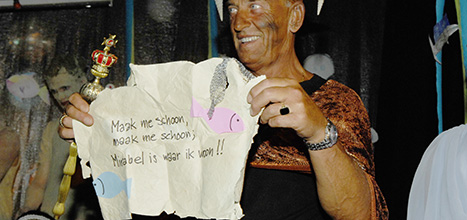 Maak me schoon,
maak me schoon;
Mirabel is waar ik woon!!